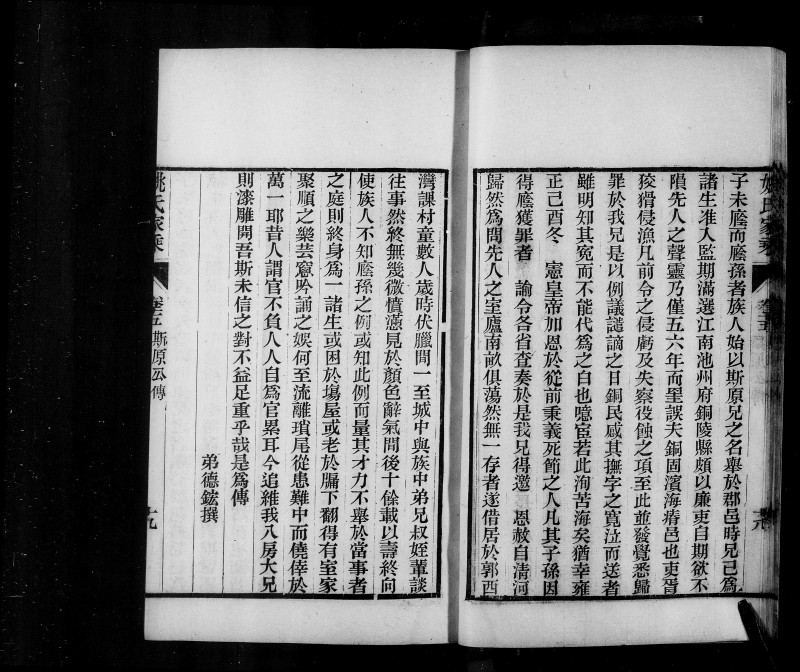 子未廕而廕孫者族人始以斯原兄之名舉於郡邑時兄已為
諸生准入監期滿選江南池州府銅陵縣頗以廉吏自期欲不
隕先人之聲靈乃僅五六年而罣誤夫銅固濱海瘠邑也吏胥
狡猾侵漁凡前令之侵虧及失察役蝕之項至此並發覺悉歸
罪於我兄是以例議譴謫之日銅民感其撫字之寬泣而送者
雖明知其冤而不能代為之白也噫宦若此洵苦海矣猶幸雍
正己酉冬 憲皇帝加恩於從前秉義死節之人凡其子孫因
得廕獲罪者 諭令各省查奏於是我兄得邀 恩赦自清河
歸然為問先人之室廬南畝俱蕩然無一存者遂借居於郭西
姚氏家乘 卷五 十八
灣課村童數人歲時伏臘間一至城中與族中弟兄叔姪輩談
往事然終無幾微憤懣見於顏色辭氣間後十餘載以壽終向
使族人不知廕孫之例或知此例而量其才力不舉於當事者
之庭則終身為一諸生或困於場屋或老於牖下翻得有室家
聚順之樂芸窗吟誦之娛何至流離瑣尾從患難中而僥倖於
萬一耶昔人謂官不負人人自為官累耳今追維我八房大兄
則漆雕開吾斯未信之對不益足重乎哉是為傳
弟德鋐撰
姚氏家乘 卷五 斯原公傳 十九